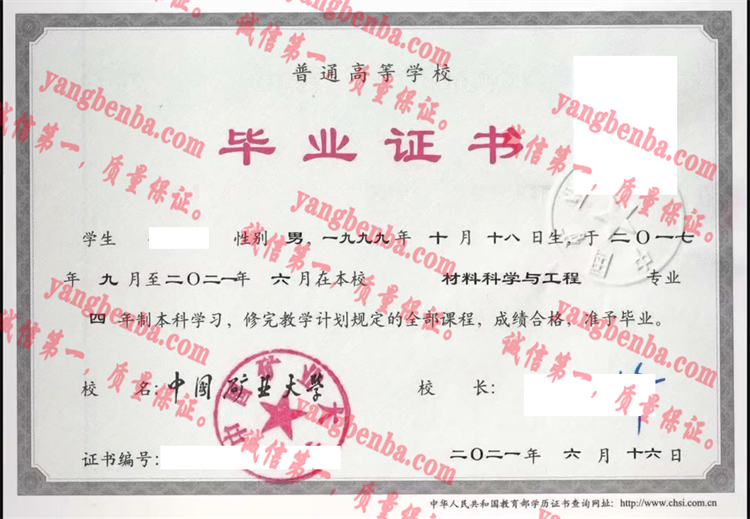 普通高等学校
毕业证书
学生 性别 男，一九九九年 十 月 十八 日生，于 二〇一七
年 九 月至二〇二一年 六 月在本校 材料科学与工程 专业
四 年制本科学习，修完教学计划规定的全部课程，成绩合格，准予毕业。
校 名：中国矿业大学 校 长：
证书编号： 二〇二一年 六 月 十六 日
中华人民共和国教育部学历证书查询网址：http://www.chsi.com.cn
yangbenba.com
诚信第一，质量保证。
yangbenba.com
诚信第一，质量保证。
yangbenba.com
诚信第一，质量保证。
yangbenba.com
诚信第一，质量保证。
yangbenba.com
诚信第一，质量保证。
yangbenba.com
诚信第一，质量保证。
yangbenba.com
诚信第一，质量保证。
yangbenba.com
诚信第一，质量保证。
yangbenba.com
诚信第一，质量保证。